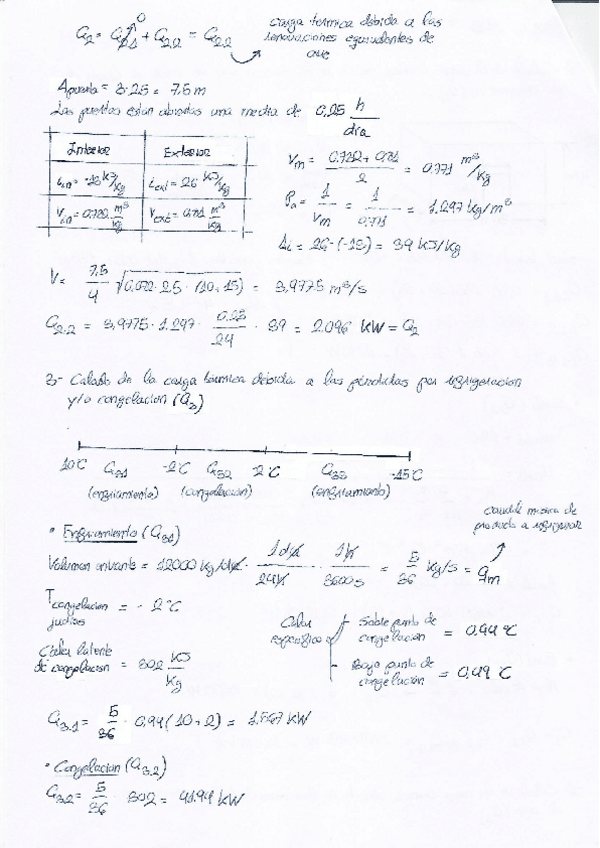 Q2 = Q2.1 + Q2.2 = Q2.2
0
carga termica debida a las
renovaciones equivalentes de
aire
Apuerta = 3·2.5 = 7.5 m
Las puertas estan abiertas una media de 0.25 h/dia
Interior Exterior
iin = -13 kJ/kg iext = 26 kJ/kg
Vin = 0.732 m³/kg Vext = 0.81 m³/kg
Vm = (0.732 + 0.81)/2 = 0.771 m³/kg
ρa = 1/Vm = 1/0.771 = 1.297 kg/m³
Δi = 26-(-13) = 39 kJ/kg
V = 7.5/4 √(0.072·2.5·(10+15)) = 3.9775 m³/s
Q2.2 = 3.9775·1.297·0.25/24·39 = 2.096 KW = Q2
3- Calculo de la carga termica debida a los productos por refrigeracion
y/o congelacion (Q3)
10°C Q3.1 -2°C Q3.2 -2°C Q3.3 -15°C
(enfriamiento) (congelacion) (enfriamiento)
caudal masico de
producto a refrigerar
· Enfriamiento (Q3.1)
Volumen entrante = 12000 kg/dia · 1 dia/24 h · 1 h/3600 s = 5/36 kg/s = qm
Tcongelacion judias = -2°C
Calor latente de congelacion = 302 kJ/kg
Calor especifico
Sobre punto de congelacion = 0.94 °C
Bajo punto de congelacion = 0.49 °C
Q3.1 = 5/36 · 0.94 (10+2) = 1.567 KW
· Congelacion (Q3.2)
Q3.2 = 5/36 · 302 = 41.94 KW